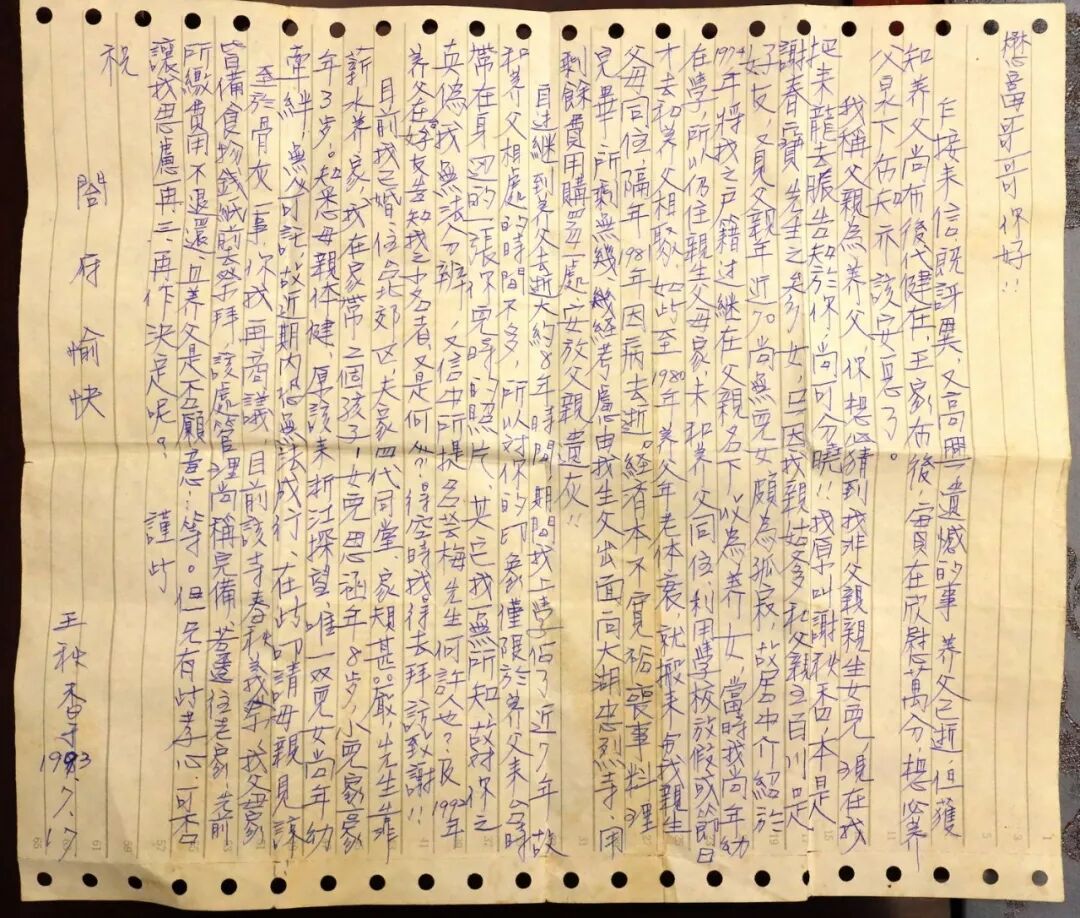 懋富哥哥你好!!
乍接来信既訝異,又高興,遺憾的事养父已逝,但獲
知养父尚有後代健在,王家有後,實在欣慰萬分,想必养
父泉下有知亦該安息了。
我稱父親為养父,你想必猜到我非父親親生女兒,現在我
把来龍去脈告知於你,尚可分曉!!我原叫謝秋香,本是
謝春寶先生之参女,只因我親爸爸和父親王百川是
好友,又見父親年近70尚無兒女,頗為孤寂,故居中介紹於
1974年將我之戶籍过継在父親名下,以為养女,當時我尚年幼
在學,所以仍住親生父母家,未和养父同住,利用學校放假或節日
才去和养父相聚,如此至1980年养父年老体衰,就搬来与我親生
父母同住,隔年1981年因病去逝。經濟本不寬裕,喪事料理
完畢,所剩無幾,幾經考慮由我生父出面向大湖忠烈寺,用
剩餘費用購買一處,安放父親遺灰!!
自过継到养父去逝大約8年時間,期間我上學佔了近7年,故
和养父相處的時間不多,所以对你的印象僅限於养父来台時
带在身边的一張你兒時的照片,其它我一無所知,故你之
真偽,我無法分辨,又信中所提名芸梅先生何許人也?及1992年
养父在台好友告知我之少名者,又是何人?待空時我得去拜訪致謝!!
目前我已婚住台北郊区,夫家四代同堂,家規甚嚴,先生靠
薪水养家,我在家带二個孩子,女兒思涵年8歲,小兒家豪
年3歲。知悉母親体健,原該来浙江探望,唯一双兒女尚年幼
牽絆!無人可託,故近期內恐無法成行,在此叩請母親見諒!
至於骨灰一事,你我再商議,目前該寺春秋義祭,我父親家
皆備食物錢紙前去祭拜,該處管理尚稱完備,若遷往老家,先前
所繳費用不退還,且养父是否願意!等。但兄有此孝心,可否
讓我思慮再三,再作決定呢? 謹此
祝
閤府愉快
王秋香
1993.7.17